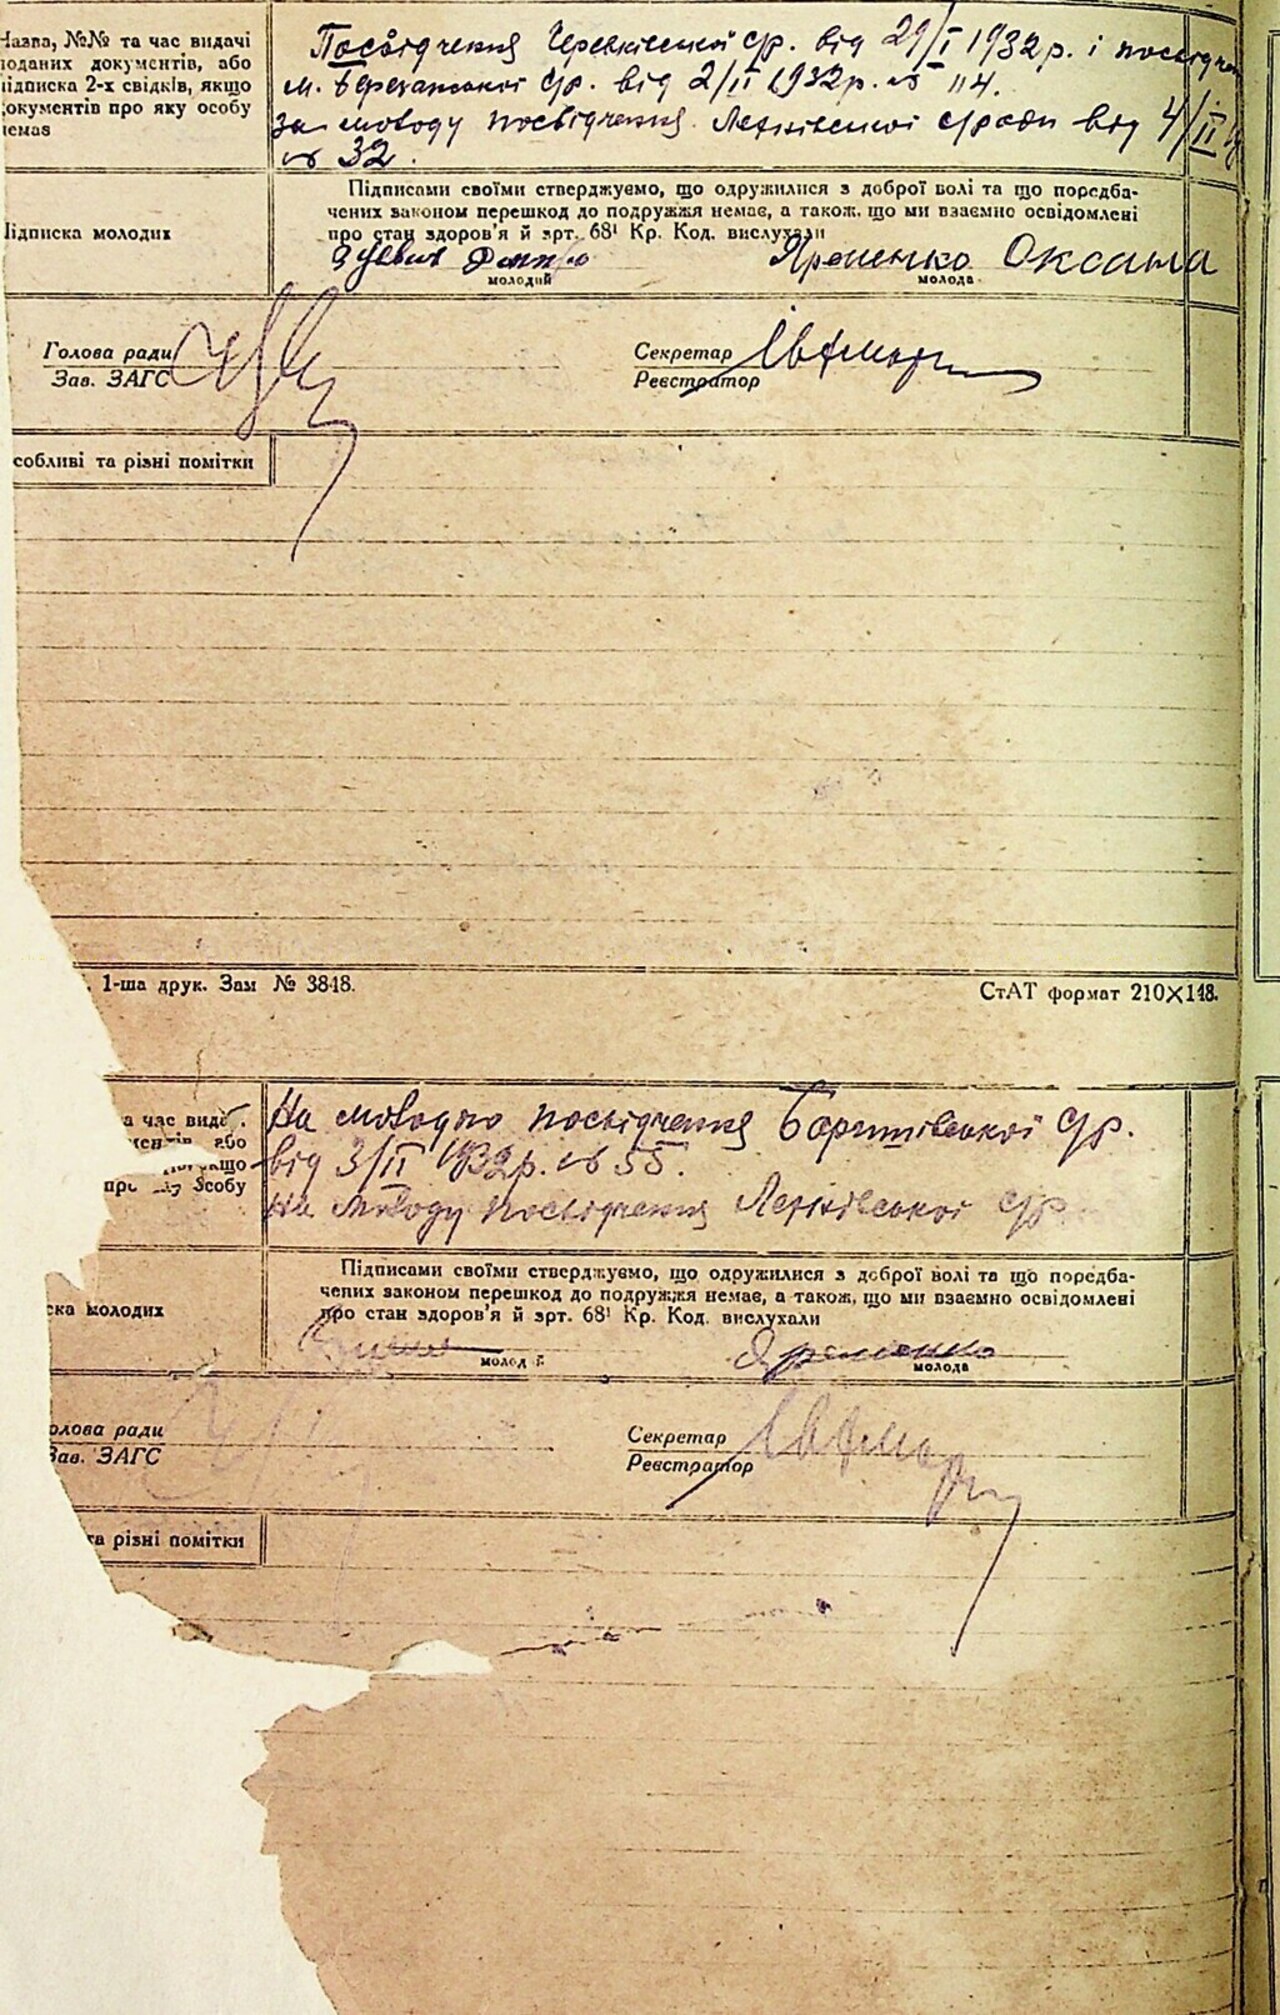 Назва, №№ та час видачі
поданих документів, або
підписка 2-х свідків, якщо
документів про яку особу
немає
Посвідчення ср. від 29/I 1932 р. і
м. Березанської ср. від 2/II 1932 р. № 114.
за молоду посвідчення Лехнівської с/ради від 4/II
№ 32.
Підписка молодих
Підписами своїми стверджуємо, що одружилися з доброї волі та що передба-
чених законом перешкод до подружжя немає, а також, що ми взаємно освідомлені
про стан здоров'я й арт. 68¹ Кр. Код. вислухали
Яременко Оксана
молодий
молода
Голова ради
Зав. ЗАГС
Секретар
Реєстратор
собливі та різні помітки
1-ша друк. Зам № 3848.
СтАТ формат 210×148.
а час вид
або
якщо
особу
На молодого посвідчення Баришівської с/р.
від 3/II 1932 р. № 55.
На молоду посвідчення Лехнівської с/р
ска молодих
Підписами своїми стверджуємо, що одружилися з доброї волі та що передба-
чених законом перешкод до подружжя немає, а також, що ми взаємно освідомлені
про стан здоров'я й арт. 68¹ Кр. Код. вислухали
Яременко
молодий
молода
олова ради
Зав. ЗАГС
Секретар
Реєстратор
та різні помітки